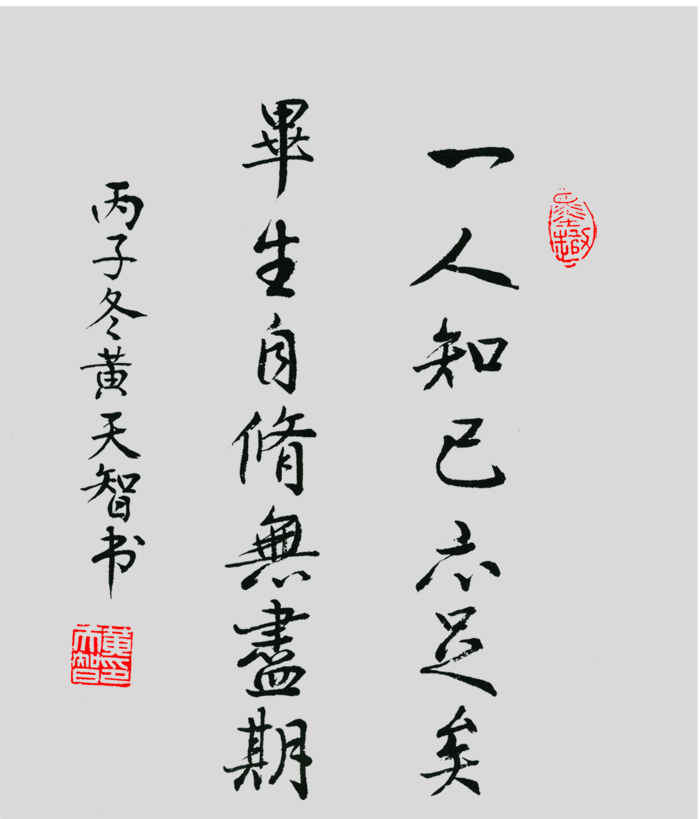 一人知己亦足矣
畢生自脩無盡期
丙子冬黄天智书
墨趣
黄天智印